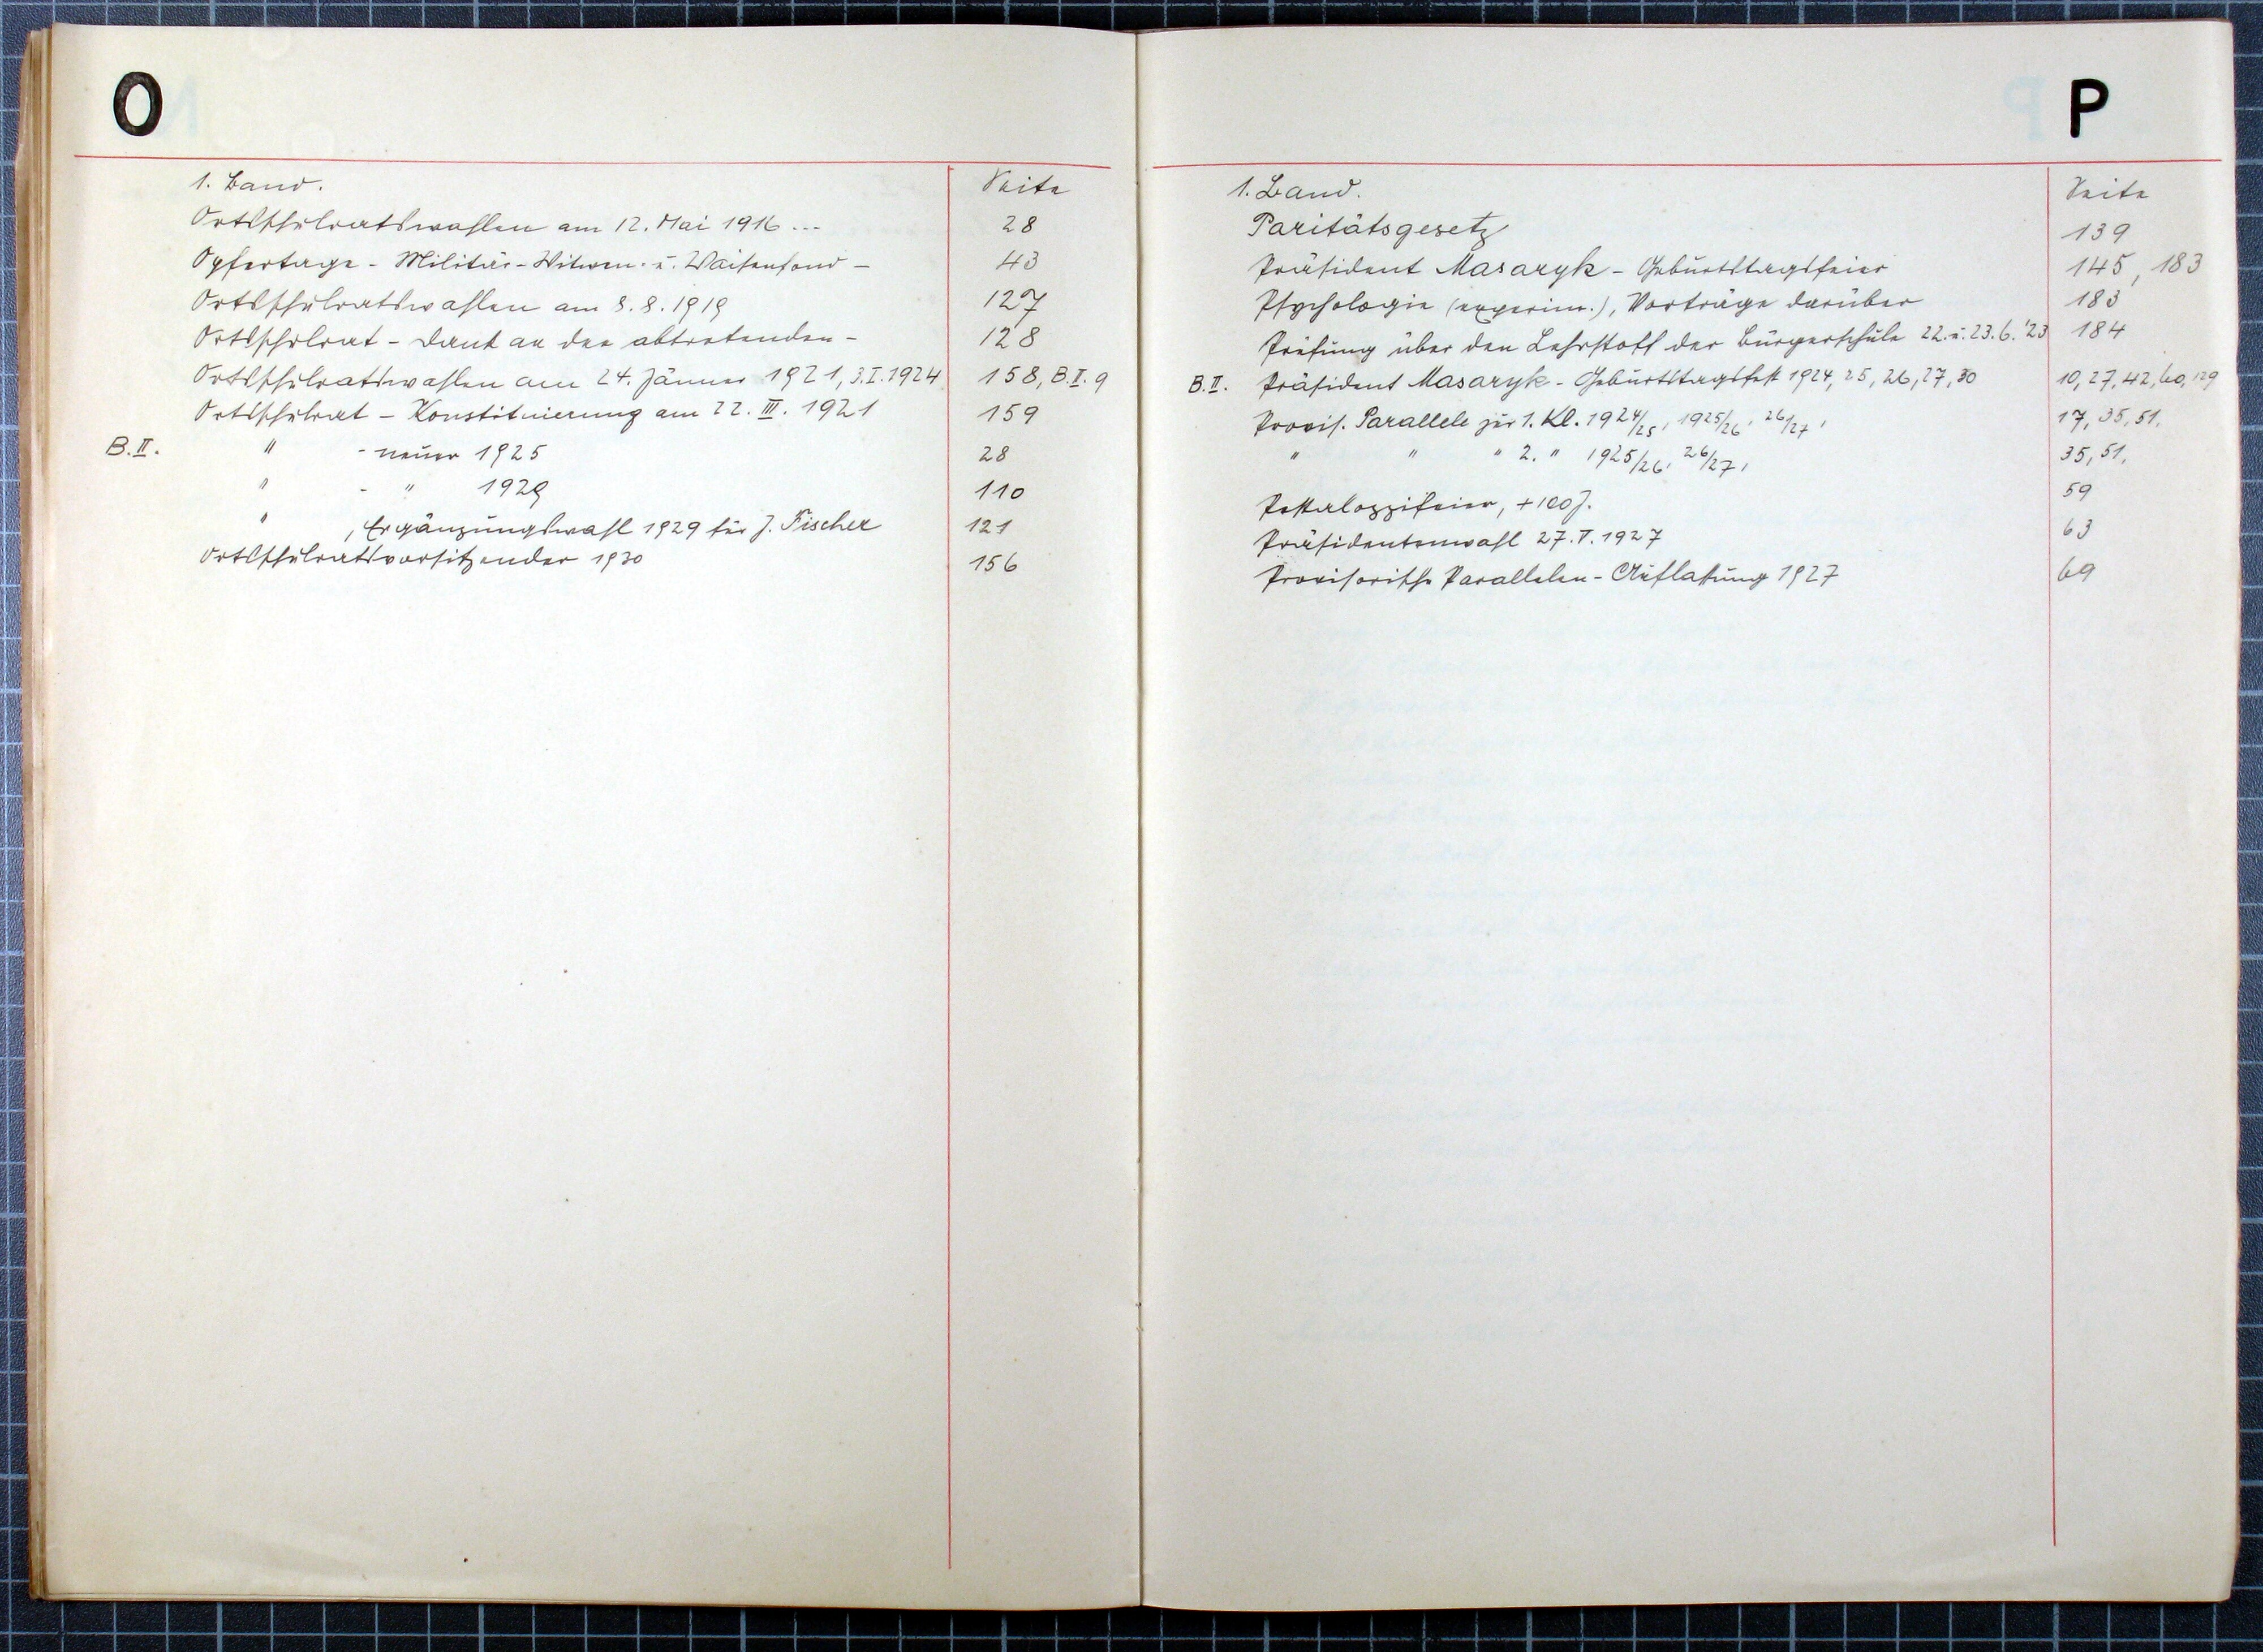 O
1. Band. Seite
Ortsschulratswahlen am 12. Mai 1916 ... 28
Opfertage - Militär-Witwen- u. Waisenfond - 43
Ortsschulratswahlen am 8. 8. 1919 127
Ortsschulrat - Dank an den abtretenden - 128
Ortsschulratswahlen am 24. Jänner 1921, 3.I.1924 158, B.II. 9
Ortsschulrat - Konstituierung am 22. III. 1921 159
B.II. " - neuer 1925 28
" - " 1929 110
" , Ergänzungswahl 1929 für J. Fischer 121
Ortsschulratsvorsitzender 1930 156
P
1. Band. Seite
Paritätsgesetz 139
Präsident Masaryk - Geburtstagsfeier 145, 183
Psychologie (experim.), Vorträge darüber 183
Prüfung über den Lehrstoff der Bürgerschule 22. u. 23. 6. '23 184
B.II. Präsident Masaryk - Geburtstagsfest 1924, 25, 26, 27, 30 10, 27, 42, 60, 129
Provis. Parallele zur 1. Kl. 1924/25, 1925/26, 26/27, 17, 35, 51,
" " " 2. " 1925/26, 26/27, 35, 51,
Pestalozzifeier, +100 J. 59
Präsidentenwahl 27. V. 1927 63
Provisorische Parallelen - Auflassung 1927 69